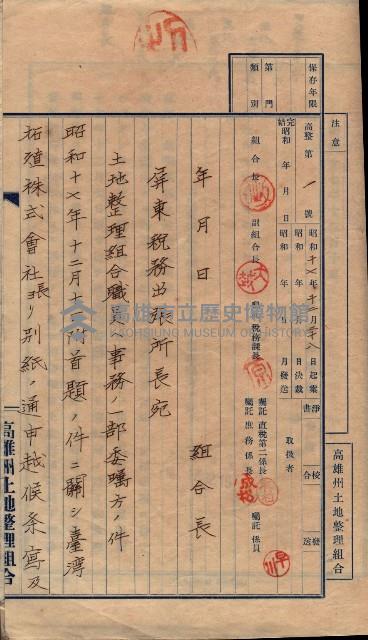 保存年限
第 門
類 別
注意
高雄州土地整理組合
高整第一號
昭和十七年十二月十八日起案
昭和 年 月 日決裁
昭和 年 月 日發送
完結 昭和 年 月 日
淨書
校合
發送
取扱者
組合長
副組合長
税務課長
囑託 直税第二係長
囑託 庶務係長
囑託 係員
年 月 日
組合長
屏東税務出張所長宛
土地整理組合職員ノ事務ノ一部委囑方ノ件
昭和十七年十二月十 附首題ノ件ニ關シ臺灣
拓殖株式會社張ヨリ別紙ノ通申越候条寫及
高雄州土地整理組合
高雄市立歷史博物館
KAOHSIUNG MUSEUM OF HISTORY